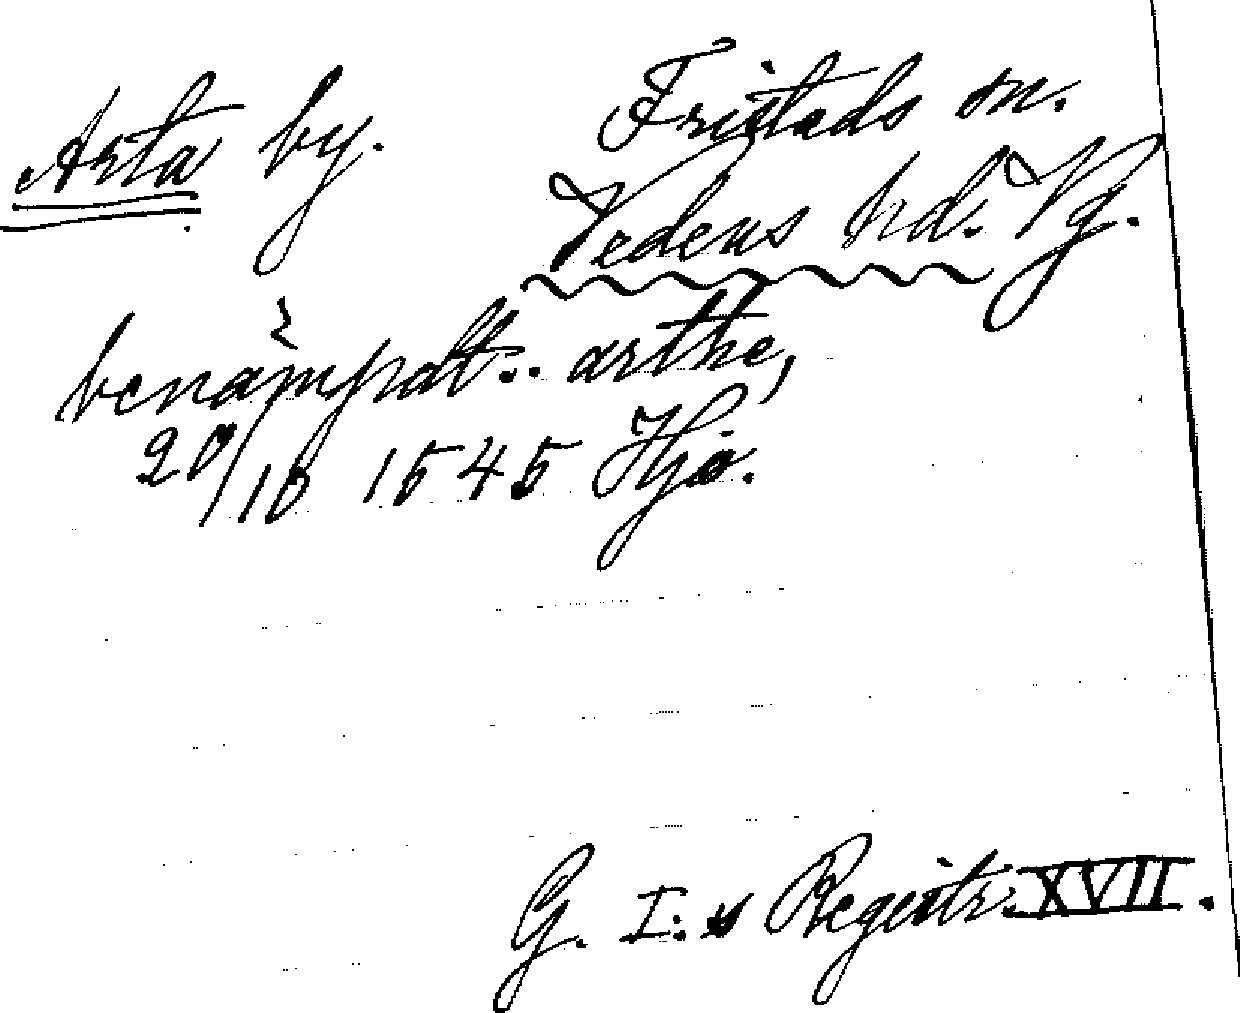 Arta by. Fristads sn.
Vedens hd. Vg.
benämpdt:. arthe,
20/10 1545 Hjo.
G. I:s Registr. XVII.